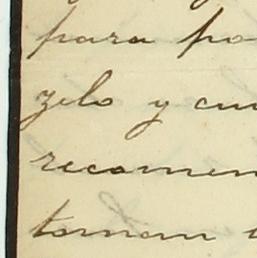 para po
zelo y cui
recomen
toman